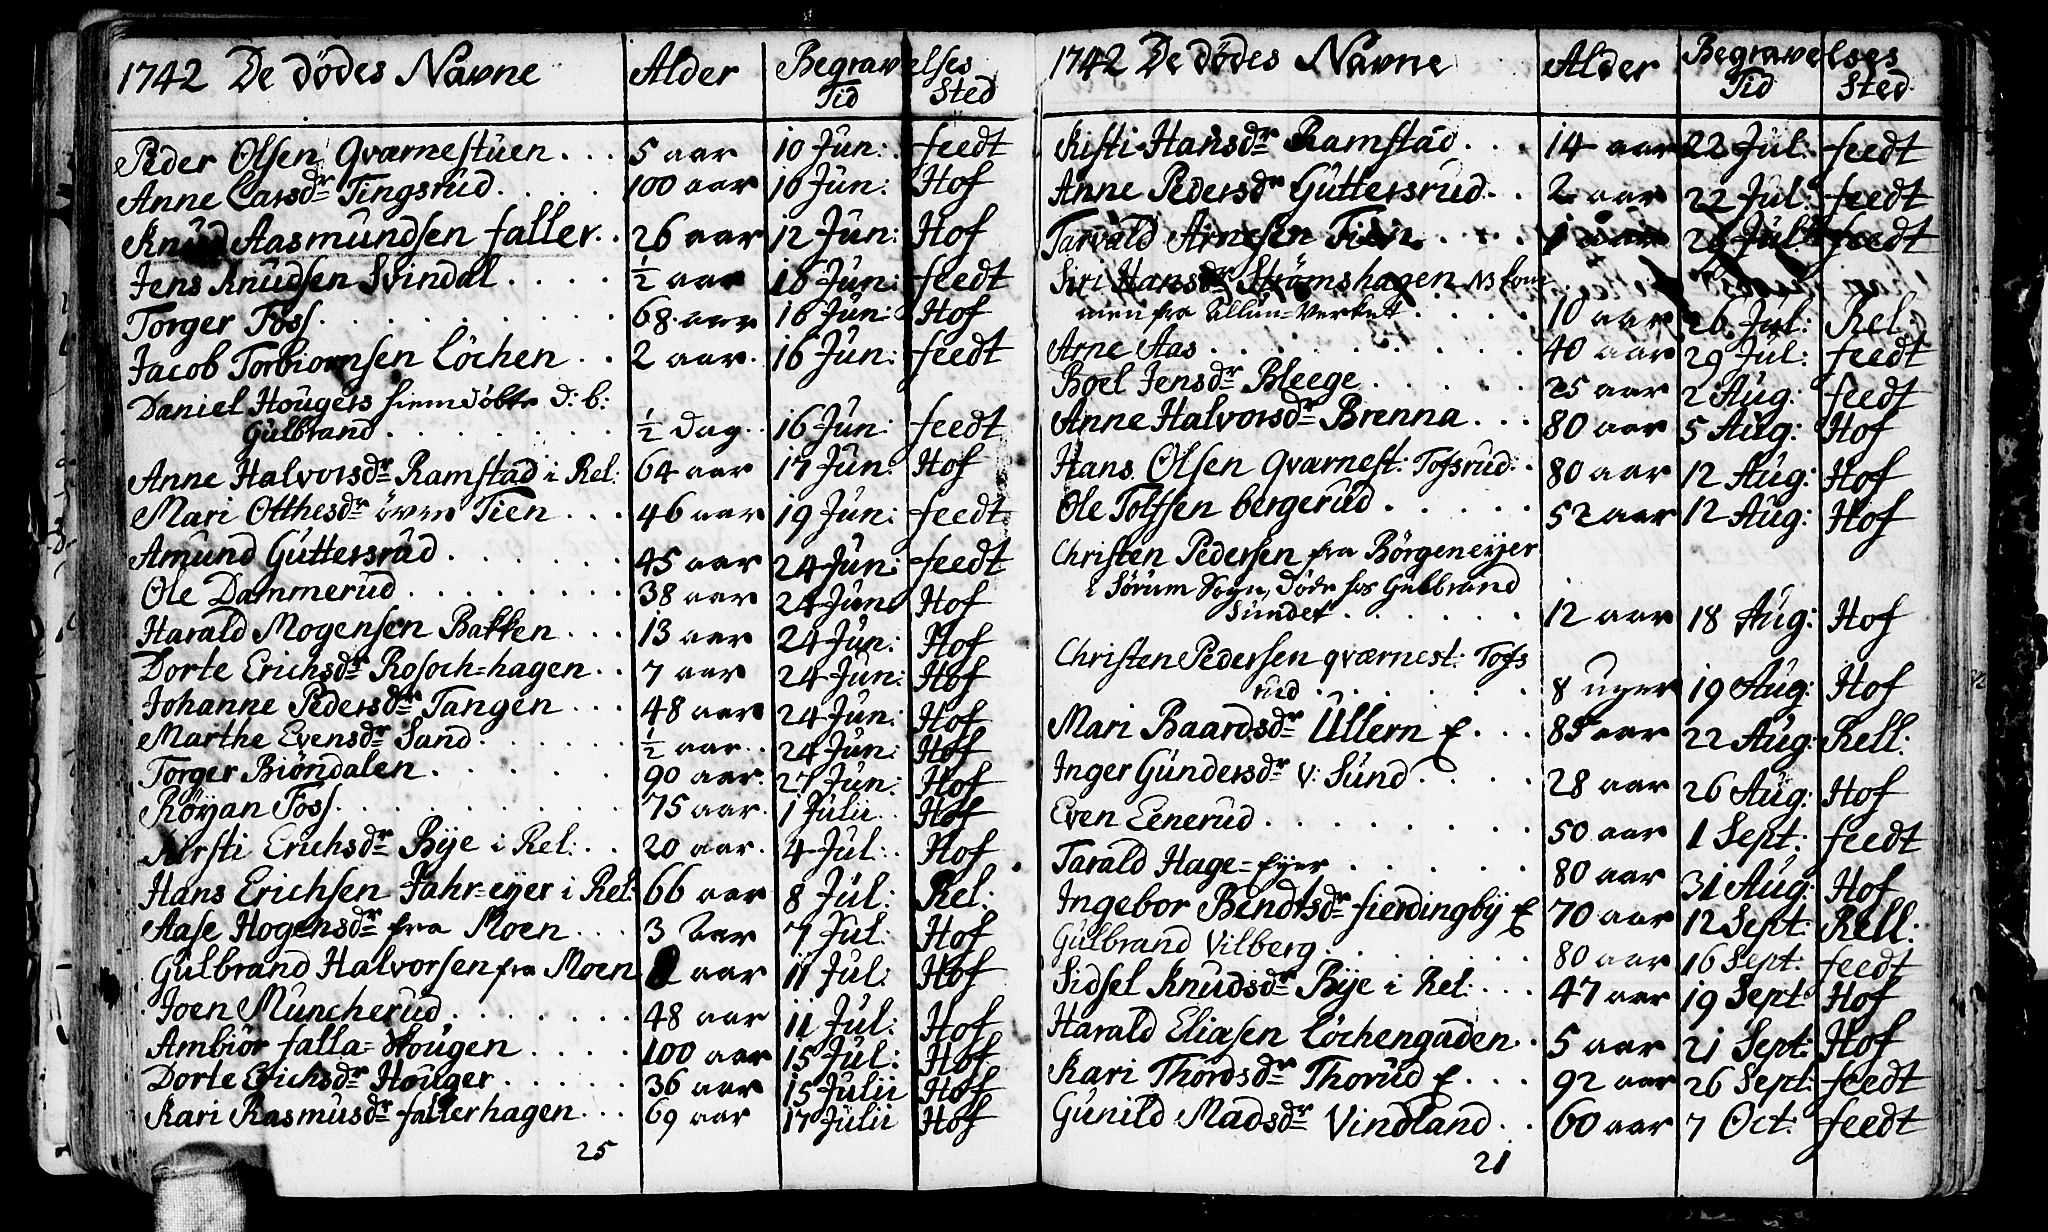 1742 De dödes Navne Alder Begravelses
Tid Sted
Peder Olsen Qværnestuen . . . 5 aar 10 Jun: feedt
Anne Larsdr Tingsrud . . . . 100 aar 10 Jun: Hof
Knud Aasmundsen faller . . 26 aar 12 Jun: Hof
Jens Knudsen Svindal . . . . ½ aar 16 Jun: feedt
Torger Foss . . . . . . . . 68 aar 16 Jun: Hof
Jacob Torbiornsen Löchen . . 2 aar. 16 Jun: feedt
Daniel Hougers hiemdöbte d: b:
Gulbrand . . . . . . . ½ Dag . . 16 Jun: feedt
Anne Halvorsdr Ramstad i Rel: 64 aar 17 Jun: Hof
Mari Otthesdr övre Tien . . . 46 aar 19 Jun: feedt
Amund Guttersrud . . . . . 45 aar 24 Jun: feedt
Ole Dammerud . . . . . . . . 38 aar 24 Juni Hof
Harald Mogensen Bakken . . . 13 aar 24 Jun: Hof
Dorte Erichsdr Rosoch=hagen . . 7 aar 24 Jun: Hof
Johanne Pedersdr Tangen . . . 48 aar 24 Jun: Hof
Marthe Evensdr Sand . . . . . ½ aar . . 24 Jun: Hof
Torger Biöndalen . . . . . . 90 aar. 27 Jun: Hof
Röyan Foss . . . . . . . . . 75 aar. 1 Julii . . Hof
Kirsti Erichsdr Bye i Rel: . . 20 aar. 4 Jul: . Hof
Hans Erichsen Fahr=eyer i Rel: 66 aar 8 Jul: Rel:
Aase Hogensdr fra Moen . . . 3 aar 7 Jul: Hof
Gulbrand Halvorsen fra Moen aar 11 Jul: Hof
Joen Muncherud . . . . . . . 48 aar 11 Jul: Hof
Ambiör falla=Hougen . . . . 100 aar 15 Jul: Hof
Dorte Erichsdr Houger . . . . . 36 aar 15 Julii Hof
Kari Rasmusdr fallerhagen . . . 69 aar 17 Julii Hof
25
1742 De dödes Navne Alder Begravelses
Tid Sted
Kisti Hansdr Ramstad . . . 14 aar 22 Jul: feedt
Anne Pedersdr Guttersrud . . 2 aar 22 Jul: feedt
Tarvald Arnesen Tien . . . . 1 aar 26 Jul: feedt
Siri Hansdr Strömshagen NB kom
men fra Allun=Verket . . . . 10 aar 26 Jul: Rel:
Arne Aas . . . . . . . . . . 40 aar 29 Jul: feedt
Boel Jensdr Bleege . . . . . 25 aar 2 Aug: feedt
Anne Halvorsdr Brenna . . . 80 aar 5 Aug: Hof
Hans Olsen qværnest: Tofsrud: . 80 aar 12 Aug: Hof
Ole Tolfsen bergerud . . . . . 52 aar 12 Aug: Hof
Christen Pedersen fra Börgeneyer
i Sörum Sogn, döde hos Gulbrand
Sundet . . . . . . 12 aar 18 Aug: Hof
Christen Pedersen qværnest: Tofs
rud . . . . . . . 8 uger 19 Aug: Hof
Mari Baardsdr Ullern E . . . 85 aar 22 Aug: Rell:
Inger Gundersdr v: Sund . . . . 28 aar 26 Aug: Hof
Even Eenerud . . . . . . . . 50 aar 1 Sept: feedt
Tarald Hage=Eyer . . . . . . 80 aar 31 Aug: Hof
Ingebor Bendtsdr fierdingby E 70 aar 12 Sept: Rell:
Gulbrand Vilberg . . . . . . . 80 aar 16 Sept: feedt
Sidsel Knudsdr Bye i Rel: . . . 47 aar 19 Sept: Hof
Harald Eliæsen Löchengaden . . 5 aar 21 Sept: Hof
Kari Thordsdr Thorud E . . . 92 aar 26 Sept: feedt
Gunild Madsdr Vindland . . 60 aar 7 Oct: feedt
21